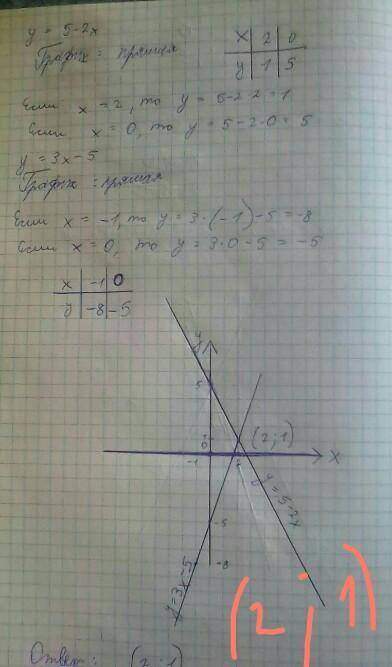 y = 5-2x
График: прямая
x 2 0
y 1 5
Если x = 2, то y = 5-2·2=1
Если x = 0, то y = 5-2·0=5
y = 3x-5
График: прямая
Если x = -1, то y = 3·(-1)-5=-8
Если x = 0, то y = 3·0-5 = -5
x -1 0
y -8 -5
y
5
(2;1)
1
0
-1
x
y=5-2x
-5
y=3x-5
-8
(2;1)
Ответ: (2;1)